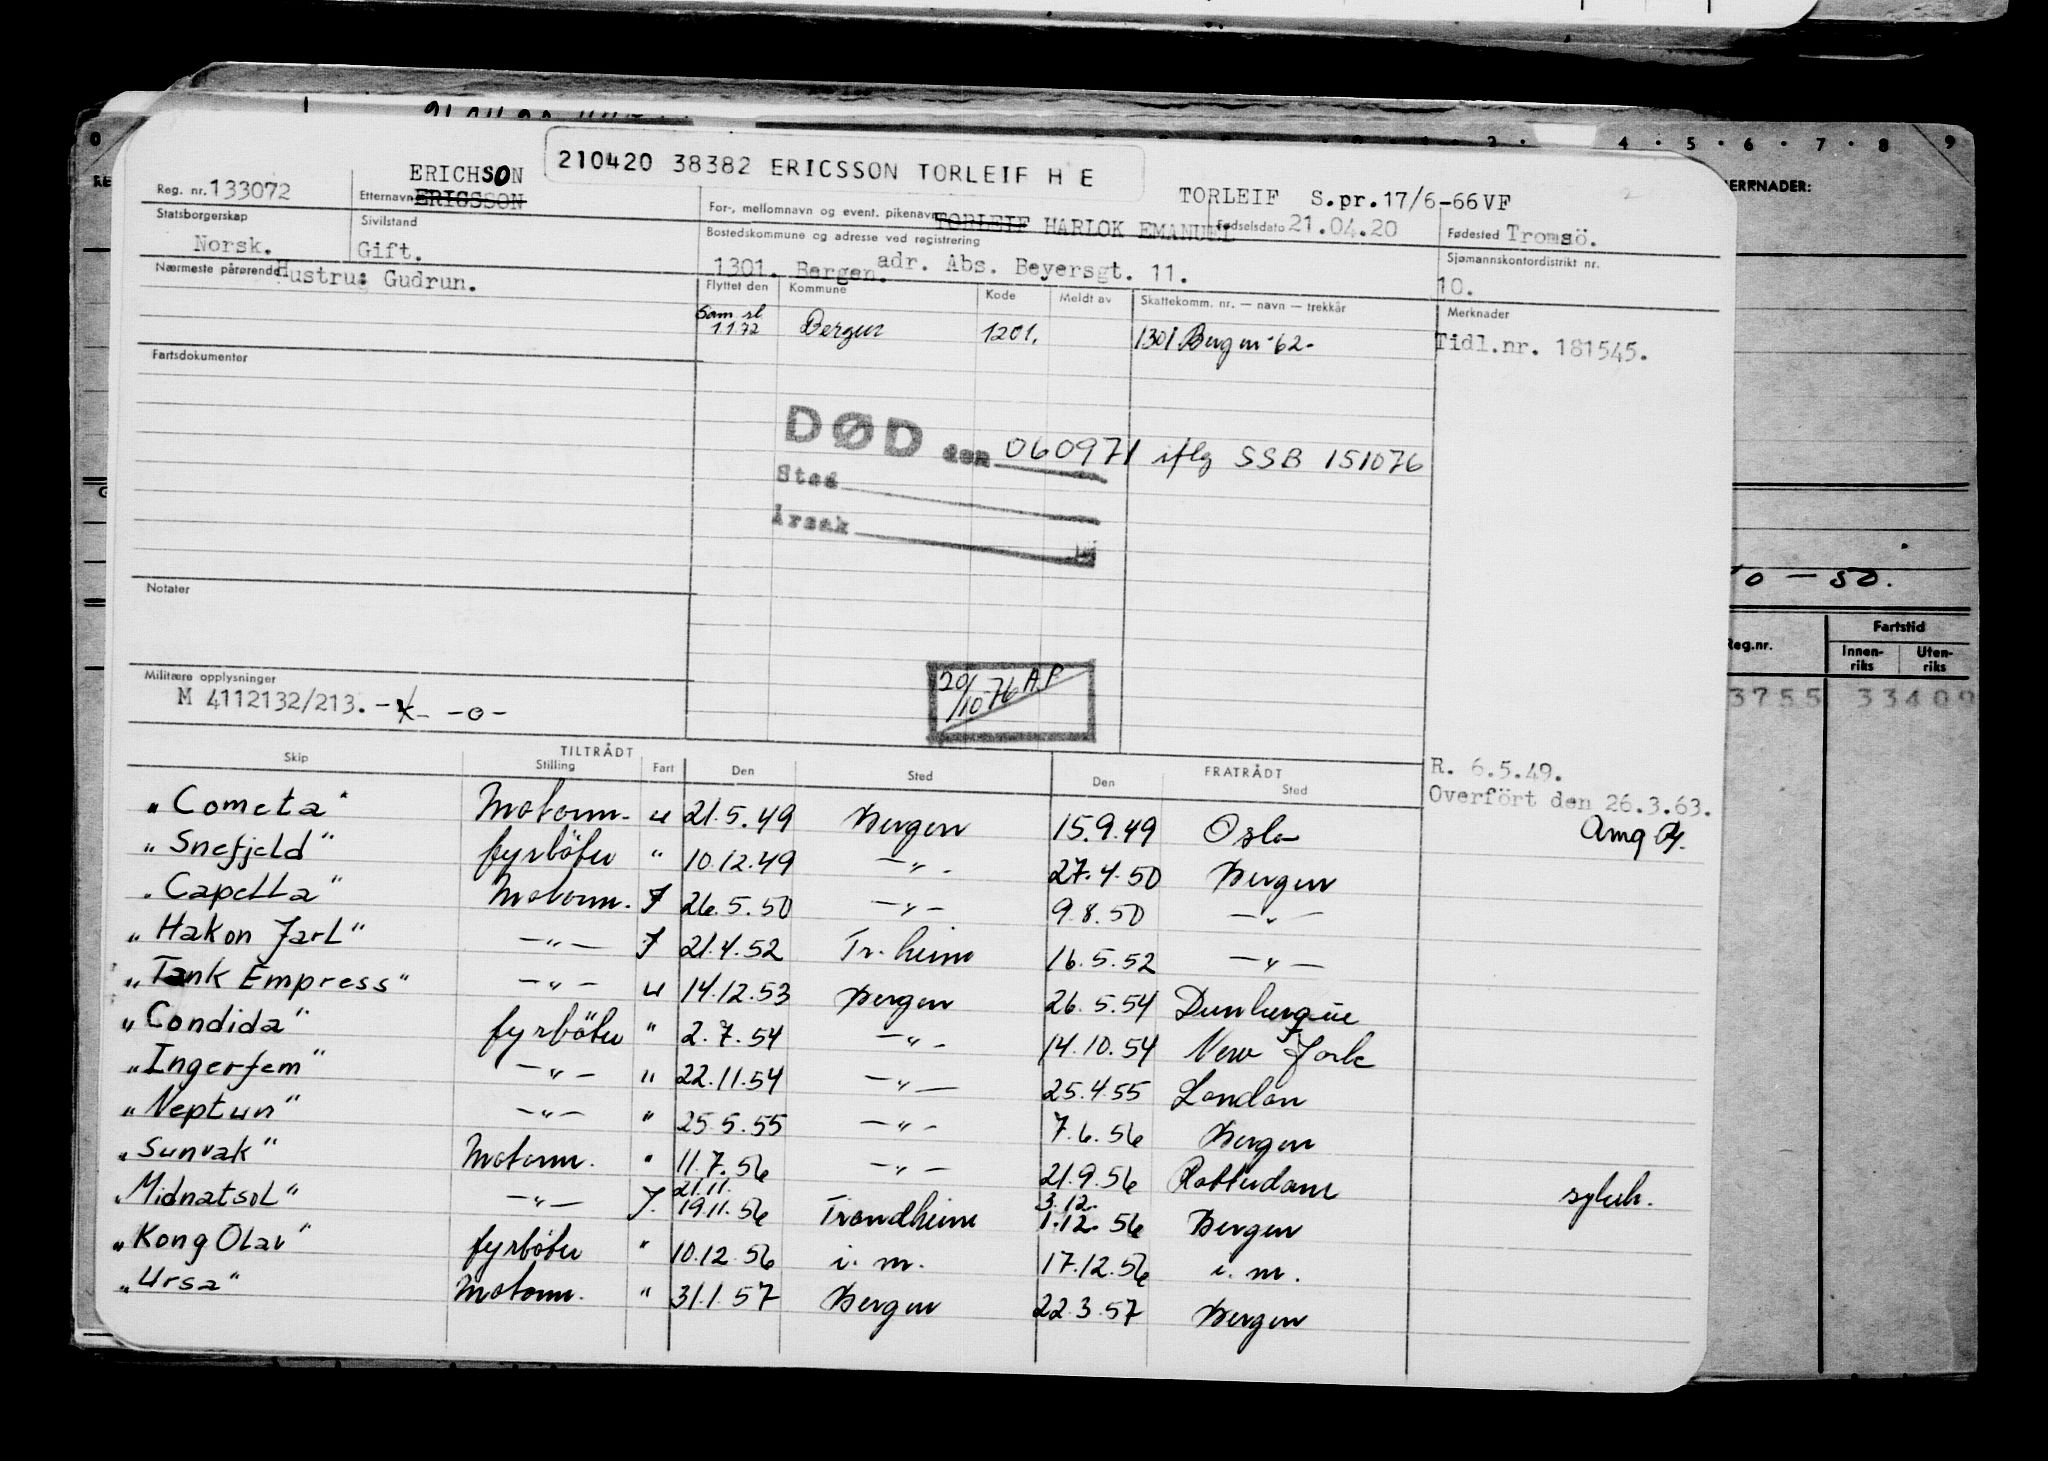 0 · 1 · 2 · 4 · 5 · 6 · 7 · 8 · 9
ERRNADER:
210420 38382 ERICSSON TORLEIF H E
Reg. nr. 133072 Etternavn ERICHSON ERICSSON
For-, mellomnavn og event. pikenavn TORLEIF HARLOK EMANUEL TORLEIF S.pr.17/6-66VF
Fødselsdato 21.04.20
Fødested Tromsö.
Statsborgerskap Norsk.
Sivilstand Gift.
Bostedskommune og adresse ved registrering
1301. Bergen. adr. Abs. Beyersgt. 11.
Sjømannskontordistrikt nr. 10.
Nærmeste pårørende Hustru: Gudrun.
Flyttet den Kommune Kode Meldt av Skattekomm. nr. — navn — trekkår Merknader
Sam sl 1.1.72 Bergen 1201. 1301 Bergen -62- Tidl.nr. 181545.
Fartsdokumenter
DØD den 060971 iflg SSB 151076
Sted
Årsak
Notater
Militære opplysninger
M 4112132/213. - -o-
20/10-76 A.P
o — 50.
Fartstid
Reg.nr. Innen-riks Uten-riks
3755 33409
TILTRÅDT FRATRÅDT
Skip Stilling Fart Den Sted Den Sted
R. 6.5.49.
Overført den 26.3.63.
"Cometa" Motorm. u 21.5.49 Bergen 15.9.49 Oslo
"Snefjeld" fyrböter " 10.12.49 —"— 27.4.50 Bergen
"Capella" Motorm. J 26.5.50 —"— 9.8.50 —"—
"Hakon Jarl" —"— J 21.4.52 Tr.heim 16.5.52 —"—
"Tank Empress" —"— u 14.12.53 Bergen 26.5.54 Dunkerque
"Condida" fyrböter " 2.7.54 —"— 14.10.54 New York
"Ingerfem" —"— " 22.11.54 —"— 25.4.55 London
"Neptun" —"— " 25.5.55 —"— 7.6.56 Bergen
"Sunvak" Motorm. " 11.7.56 —"— 21.9.56 Rotterdam sykeh.
"Midnatsol" —"— J. 21.11. 19.11.56 Trondheim 3.12. 1.12.56 Bergen
"Kong Olav" fyrböter " 10.12.56 i. m. 17.12.56 i. m.
"Ursa" Motorm. " 31.1.57 Bergen 22.3.57 Bergen